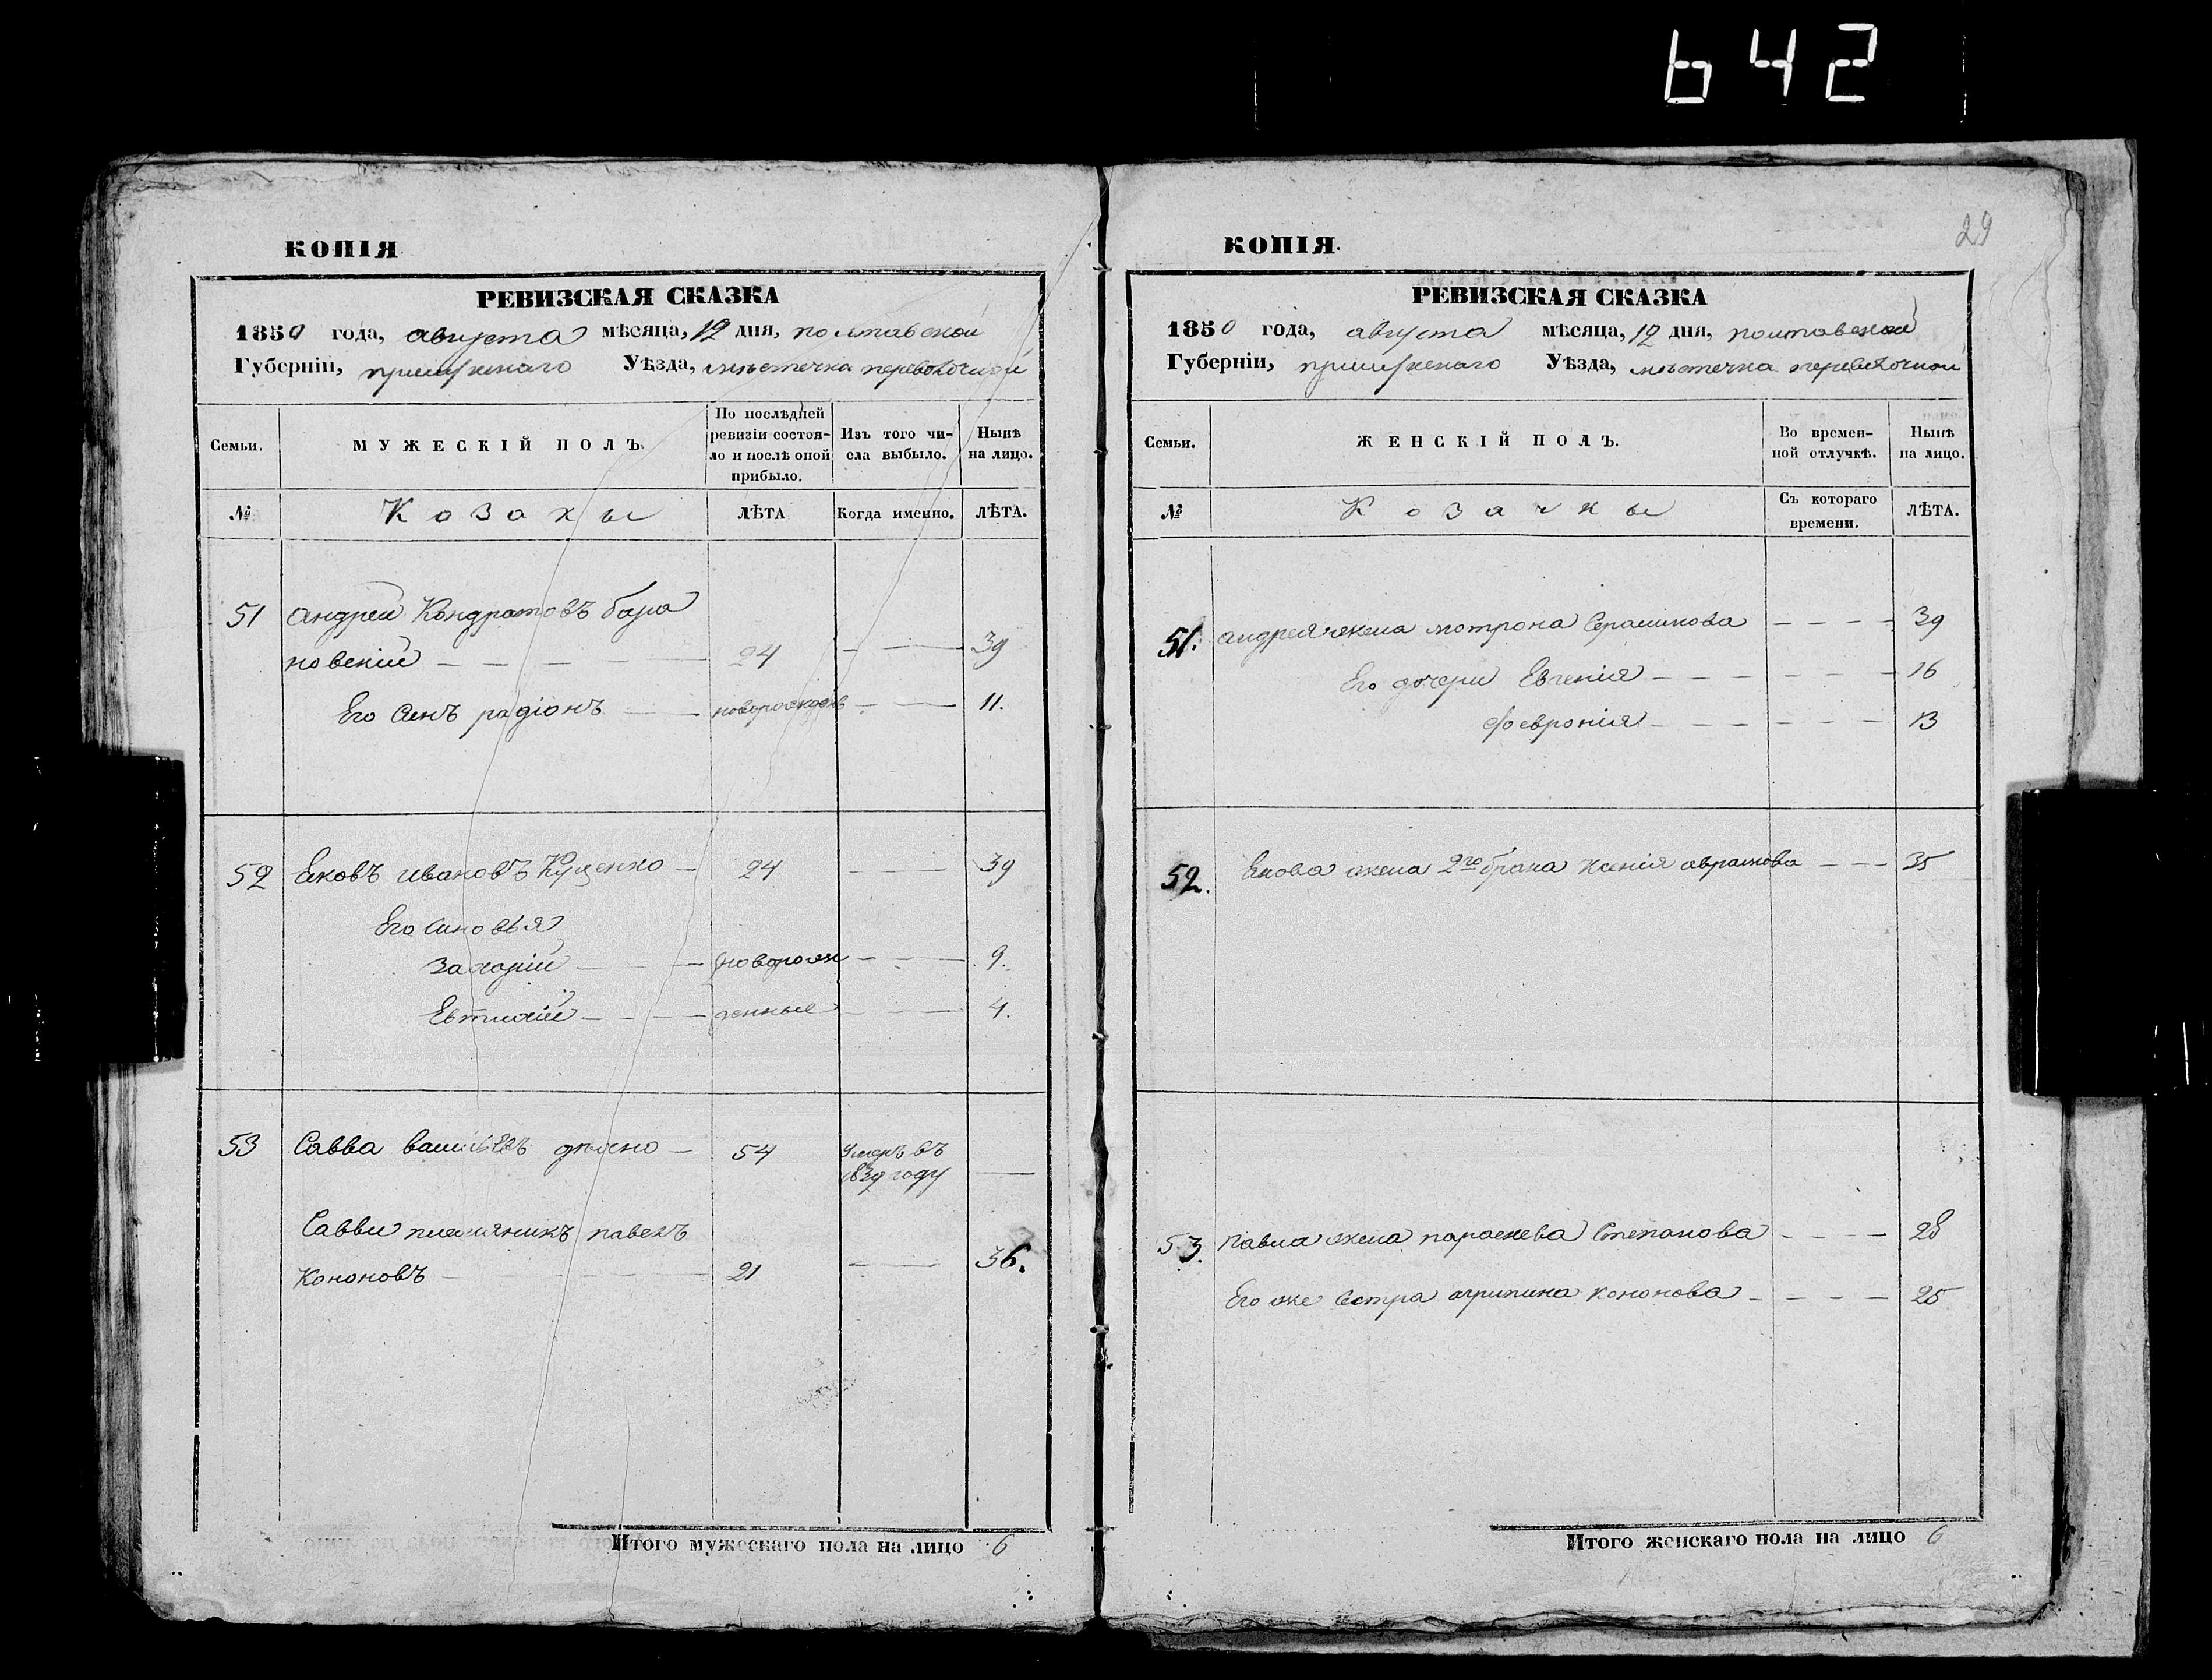 642
КОПІЯ.
РЕВИЗСКАЯ СКАЗКА
1850 года, августа мѣсяца, 12 дня, полтавской
Губерніи, прилуцкаго Уѣзда, мѣстечка переволочной
Семьи.
МУЖЕСКІЙ ПОЛЪ.
По послѣдней ревизіи состоя-
ло и послѣ оной прибыло.
Изъ того чи-
сла выбыло.
Нынѣ
на лицо.
№
Козаки
ЛѢТА
Когда именно.
ЛѢТА.
51 Андрей Кондратовъ бара
новскій — 24 — 39
Его Сынъ радіонъ — новорожден — 11.
52 Яковъ ивановъ Куценко — 24 — 39
Его Синовья
Захарій — новорож — 9.
Евтихій — денные — 4.
53 Савва васильевъ — 54 Умеръ въ
1839 году —
Савви племяникъ павелъ
Кононовъ — 21 — 36.
Итого мужескаго пола на лицо 6
29
КОПІЯ.
РЕВИЗСКАЯ СКАЗКА
1850 года, августа мѣсяца, 12 дня, полтавской
Губерніи, прилуцкаго Уѣзда, мѣстечка переволочной
Семьи.
ЖЕНСКІЙ ПОЛЪ.
Во времен-
ной отлучкѣ.
Нынѣ
на лицо.
№
Козачки
Съ котораго
времени.
ЛѢТА.
51. андрея жена мотрона — 39
Его дочери Евгенія — 16
февронія — 13
52. Якова жена 2го брака Ксенія аврамова — 35
53. павла жена параскева Степанова — 28
Его же Сестра агрипина кононова — 25
Итого женскаго пола на лицо 6